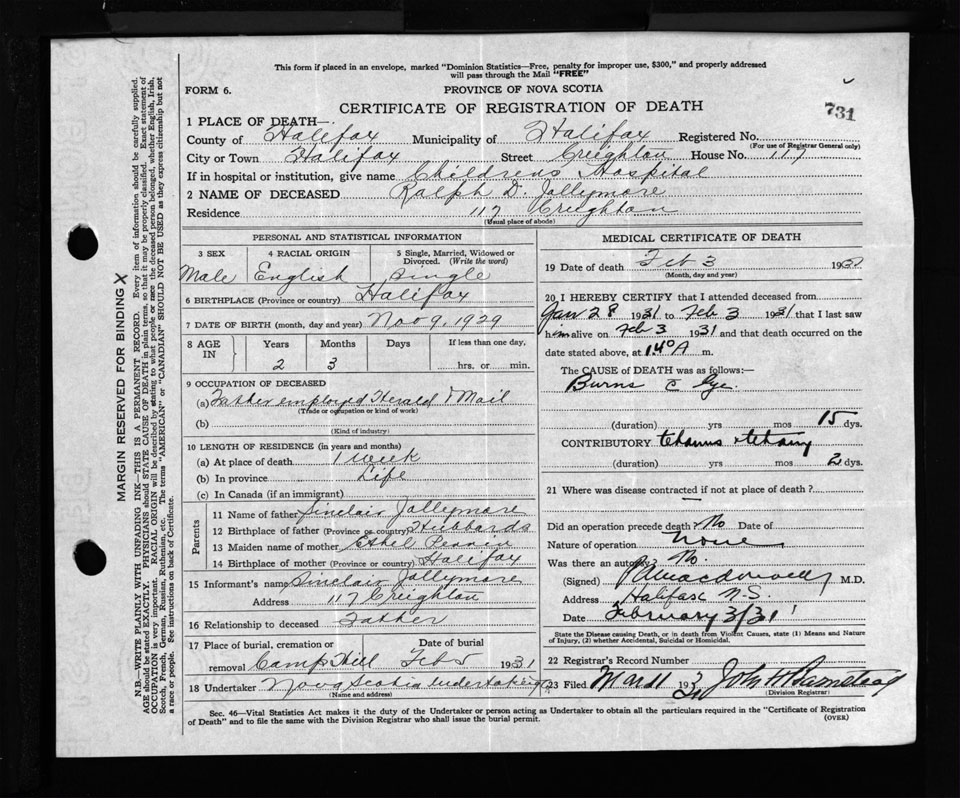 This form if placed in an envelope, marked "Dominion Statistics—Free, penalty for improper use, $300," and properly addressed
will pass through the Mail "FREE"
FORM 6.
PROVINCE OF NOVA SCOTIA
731
CERTIFICATE OF REGISTRATION OF DEATH
1 PLACE OF DEATH—
County of Halifax Municipality of Halifax Registered No.
(For use of Registrar General only)
City or Town Halifax Street Creighton House No. 117
If in hospital or institution, give name Childrens Hospital
2 NAME OF DECEASED Ralph D. Jollymore
Residence 117 Creighton
(Usual place of abode)
PERSONAL AND STATISTICAL INFORMATION
3 SEX 4 RACIAL ORIGIN 5 Single, Married, Widowed or
Divorced. (Write the word)
Male English Single
6 BIRTHPLACE (Province or country) Halifax
7 DATE OF BIRTH (month, day and year) Nov 9, 1929
8 AGE IN Years Months Days If less than one day,
2 3 hrs. or min.
9 OCCUPATION OF DECEASED
(a) Father employed Herald & Mail
(Trade or occupation or kind of work)
(b)
(Kind of industry)
10 LENGTH OF RESIDENCE (in years and months)
(a) At place of death 1 week
(b) In province Life
(c) In Canada (if an immigrant)
Parents
11 Name of father Sinclair Jollymore
12 Birthplace of father (Province or country) Hubbards
13 Maiden name of mother Ethel
14 Birthplace of mother (Province or country) Halifax
15 Informant's name Sinclair Jollymore
Address 117 Creighton
16 Relationship to deceased Father
17 Place of burial, cremation or Date of burial
removal Camp Hill Feb 5 1931
18 Undertaker Nova Scotia Undertaking Co
MEDICAL CERTIFICATE OF DEATH
19 Date of death Feb 3 193
(Month, day and year)
20 I HEREBY CERTIFY that I attended deceased from
Jan 28 1931 to Feb 3 1931 that I last saw
him alive on Feb 3 1931 and that death occurred on the
date stated above, at A m.
The CAUSE OF DEATH was as follows:—
Burns
(duration) yrs mos 15 dys.
CONTRIBUTORY
(duration) yrs mos 2 dys.
21 Where was disease contracted if not at place of death?
Did an operation precede death? No Date of
Nature of operation None
Was there an autopsy? No.
(Signed) M.D.
Address Halifax N.S.
Date February 3/31
State the Disease causing Death, or in death from Violent Causes, state (1) Means and Nature
of Injury, (2) whether Accidental, Suicidal or Homicidal.
22 Registrar's Record Number
23 Filed Mar 11 193 John H Barnstead
(Division Registrar)
Sec. 46—Vital Statistics Act makes it the duty of the Undertaker or person acting as Undertaker to obtain all the particulars required in the "Certificate of Registration
of Death" and to file the same with the Division Registrar who shall issue the burial permit.
(OVER)
MARGIN RESERVED FOR BINDING X
N.B.—WRITE PLAINLY WITH UNFADING INK—THIS IS A PERMANENT RECORD. Every item of information should be carefully supplied.
AGE should be stated EXACTLY. PHYSICIANS should STATE CAUSE OF DEATH in plain terms, so that it may be properly classified. Exact statement of
OCCUPATION is very important. RACIAL ORIGIN will be described by stating to what people or race the deceased person belonged, whether English, Irish,
Scotch, French, German, Russian, Ruthenian, etc. The terms "AMERICAN" or "CANADIAN" SHOULD NOT BE USED as they express citizenship but not
a race or people. See instructions on back of Certificate.